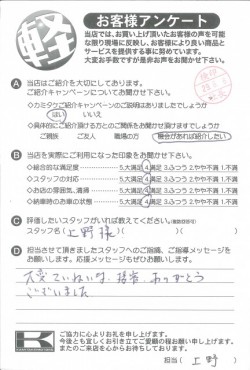 軽
お客様アンケート
当店では、お買い上げ頂いたお客様の声を可能
な限り現場に反映し、お客様により良い商品と
サービスを提供する事に努めています。
大変お手数ですが是非お声をお聞かせ下さい。
A 当店はご紹介を大切にしております。
ご紹介キャンペーンについてお聞かせ下さい。
◇カミタケご紹介キャンペーンのご説明はありましたでしょうか
はい いいえ
◇具体的にご紹介頂ける方とのご関係をお聞かせ下さいませ。
ご親族 ご友人 職場の方 機会があれば紹介したい
B 当店を実際にご利用になった印象をお聞かせ下さい。
◇総合的な満足度 5.大満足 4.満足 3.ふつう 2.やや不満 1.不満
◇スタッフの対応 5.大満足 4.満足 3.ふつう 2.やや不満 1.不満
◇お店の雰囲気、清掃 5.大満足 4.満足 3.ふつう 2.やや不満 1.不満
◇納車時のお車の状態 5.大満足 4.満足 3.ふつう 2.やや不満 1.不満
C 評価したいスタッフがいれば教えてください。(複数回答可)
スタッフ名( 上野様 )
D 担当させて頂きましたスタッフへのご指摘、ご指導メッセージを
お願いします。応援メッセージもぜひお願いします。
大変ていねいな接客ありがとう
ございました
K
ご協力に心よりお礼を申し上げます。
今後とも宜しくお引き立てご愛顧の程お願い申し上げます。
またのご来店を心からお待ちしております。
担当( 上野 )